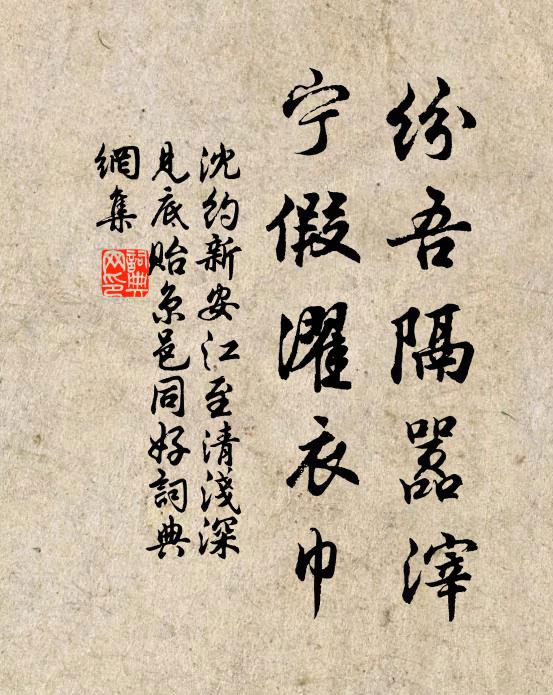 纷吾隔嚣滓
宁假濯衣巾
沈约新安江至清淺深
见底贻京邑同好詞典
網集
詞典网印